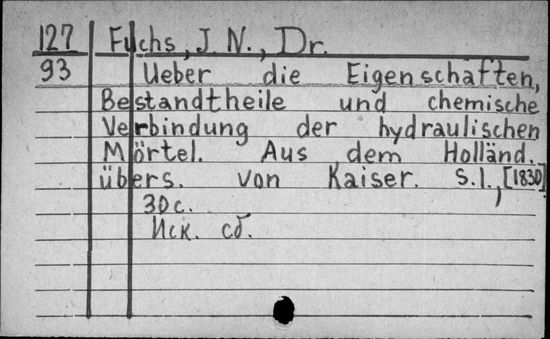 127 Fuchs, J. N., Dr.
93 Ueber die Eigenschaften,
Bestandtheile und chemische
Verbindung der hydraulischen
Mörtel. Aus dem Holländ.
übers. von Kaiser. S.l., [1830]
30 с.
Иск. сб.